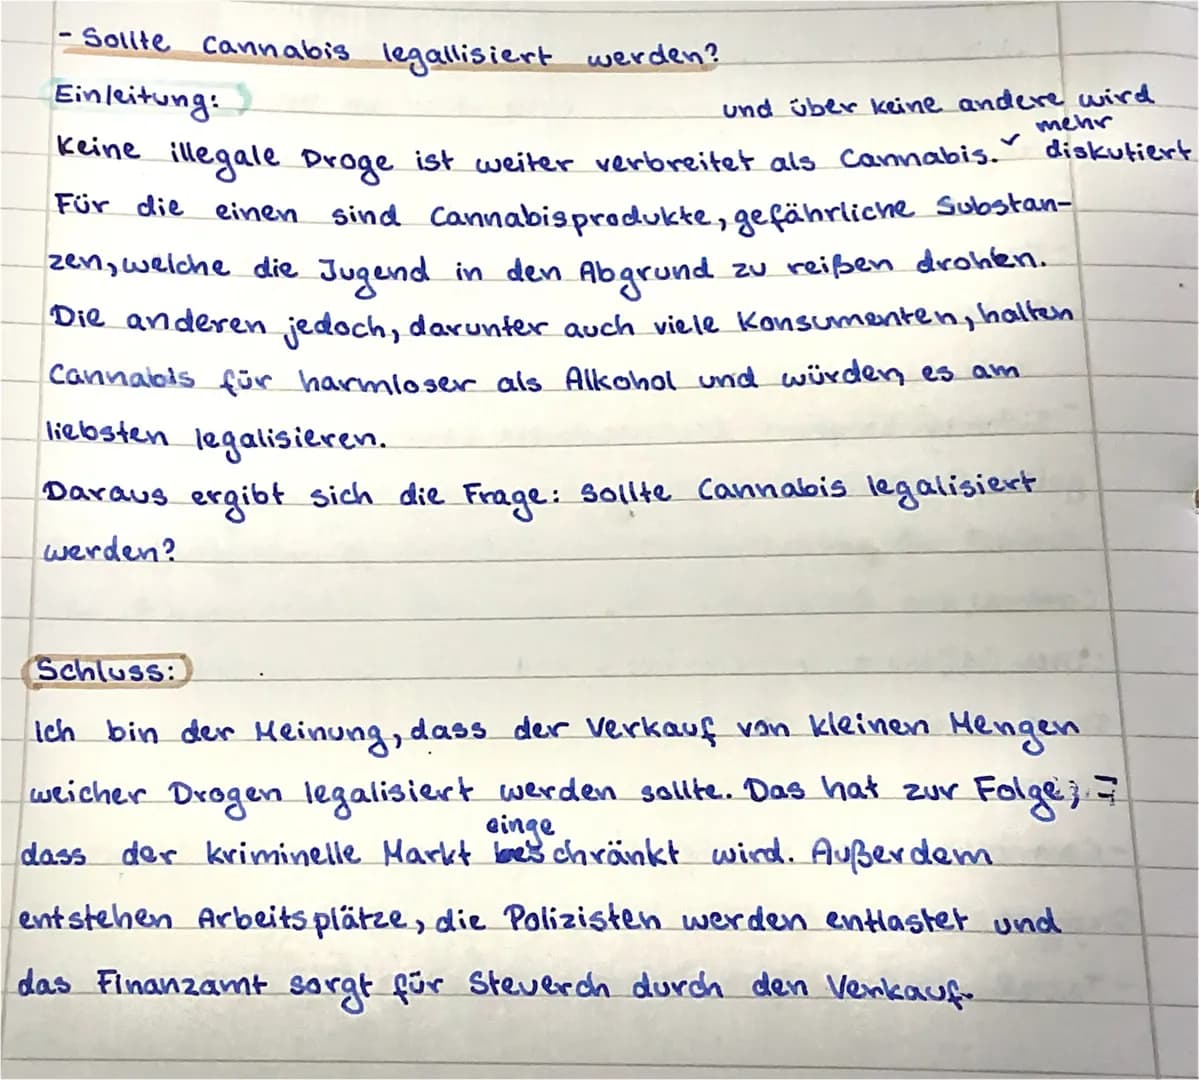 - Sollte Cannabis legallisiert werden?
Einleitung:
und über keine andere wird
mehr
Keine illegale Droge ist weiter verbreitet als Cannabis. ✓ diskutiert
Für die einen sind Cannabisprodukte, gefährliche Substan-
zen, welche die Jugend in den Abgrund zu reißen drohen.
Die anderen jedoch, darunter auch viele Konsumenten, halten
Cannabis für harmloser als Alkohol und würden es am
liebsten legalisieren.
Daraus ergibt sich die Frage: Sollte Cannabis legalisiert
werden?
Schluss:
Ich bin der Meinung, dass der Verkauf von kleinen Mengen
weicher Drogen legalisiert werden sollte. Das hat zur Folge,
einge
dass der kriminelle Markt beschränkt wird. Außerdem
entstehen Arbeitsplätze, die Polizisten werden entlastet und
das Finanzamt sorgt für Steuerch durch den Verkauf.